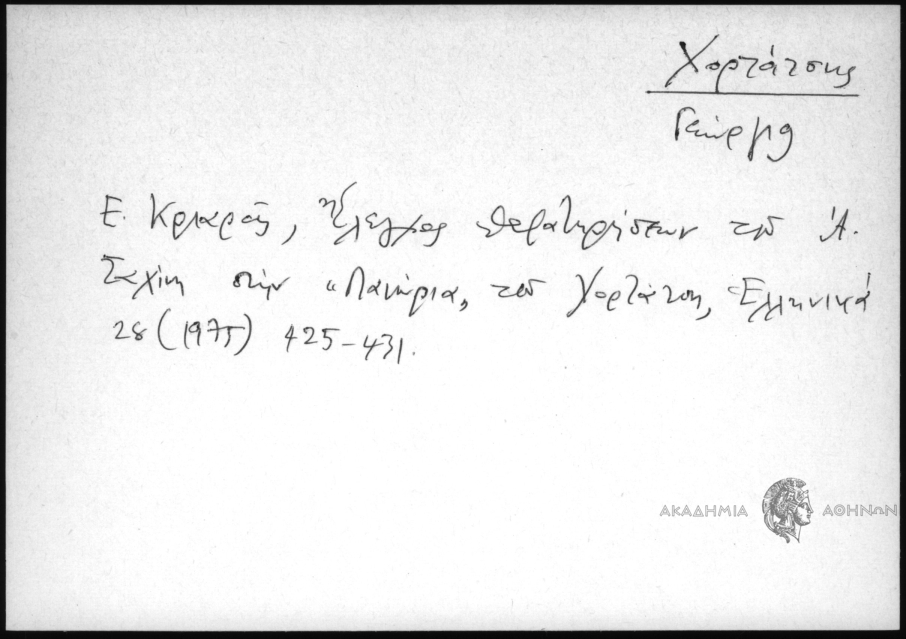 Χορτάτσης
Γεώργιος
Ε. Κριαρᾶς, Ἔλεγχος παρατηρήσεων τοῦ Ἀ.
Σαχίνη στὴν "Πανώρια„ τοῦ Χορτάτση, Ἑλληνικά
28 (1975) 425-431.
ΑΚΑΔΗΜΙΑ ΑΘΗΝΩΝ